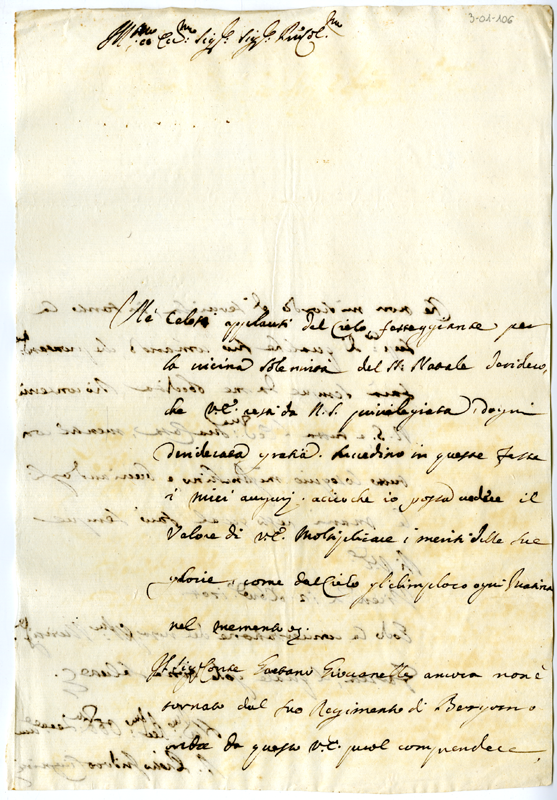 3-01-106
Ill.mo et Ecc.mo Sig.r Sig.r P.ron Col.mo
Ne' celesti applausi del Cielo festeggiante per
la vicina solennità del S. Natale desidero,
che V.E. resti da N.S. privilegiata d'ogni
desiderata gratia. Accedino in queste feste
i miei augurij, acciò che io possa vedere il
Valore di V.E. Moltiplicare i meriti delle sue
glorie, come dal Cielo gl'
nel mentre
Il Sig. Conte Gaetano Giovanelli ancora non è
tornato dal suo Reggimento di Bergamo
da questo V.E. puol comprendere,